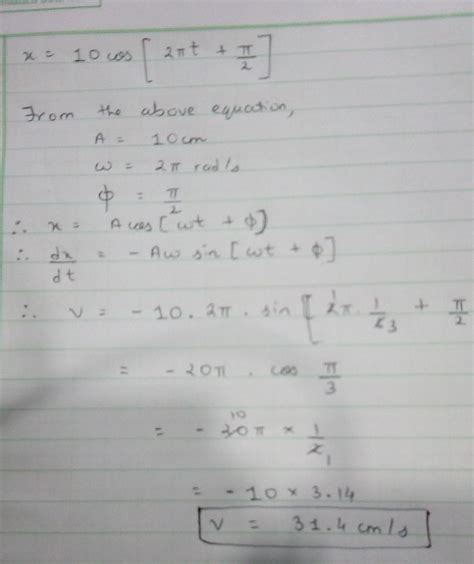 x = 10 cos [ 2πt + π/2 ]
From the above equation,
A = 10cm
ω = 2π rad/s
ϕ = π/2
∴ x = A cos [ ωt + ϕ ]
∴ dx/dt = - Aω sin [ ωt + ϕ ]
∴ v = - 10 . 2π . sin [ 2π . 1/6 3 + π/2
= - 20π . cos π/3
= - 20π 10 × 1/2 1
= - 10 × 3.14
v = 31.4 cm/s